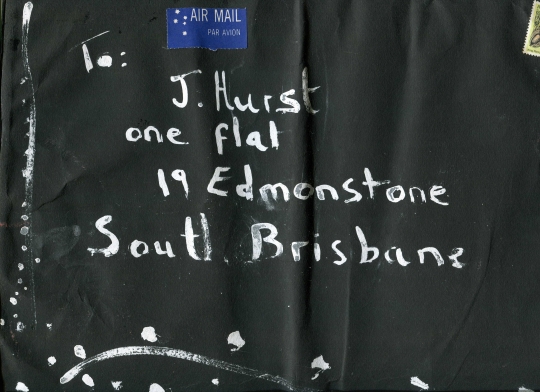 AIR MAIL
PAR AVION
To:
J. Hurst
one flat
19 Edmonstone
South Brisbane